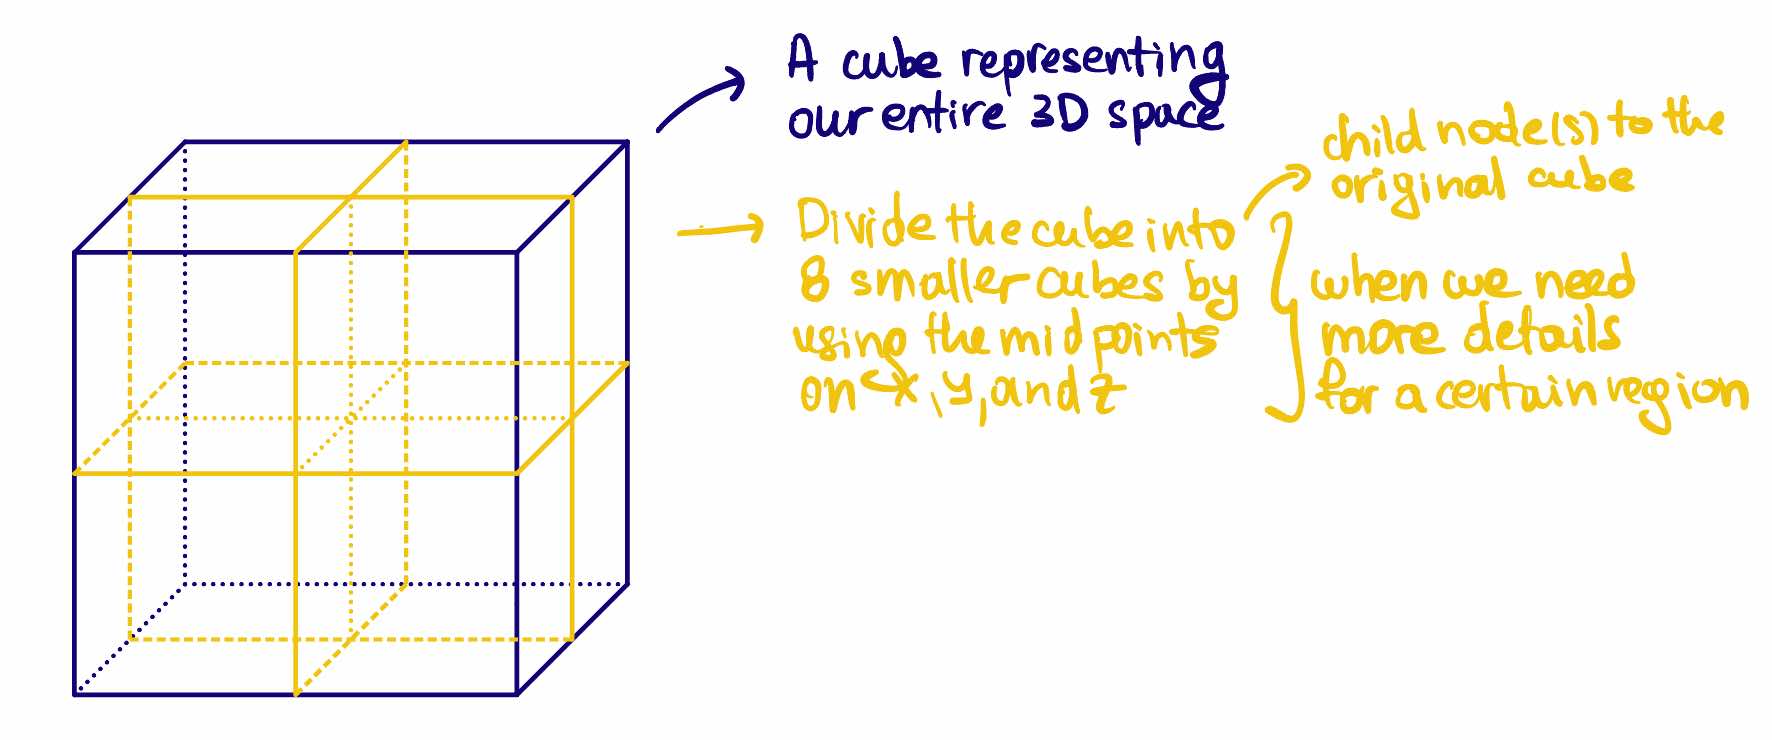 A cube representing
our entire 3D space
Divide the cube into
8 smaller cubes by
using the midpoints
on x, y, and z
child node(s) to the
original cube
when we need
more details
for a certain region